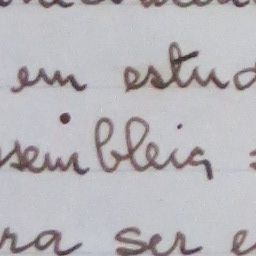 em estud
sembleia
ra ser e